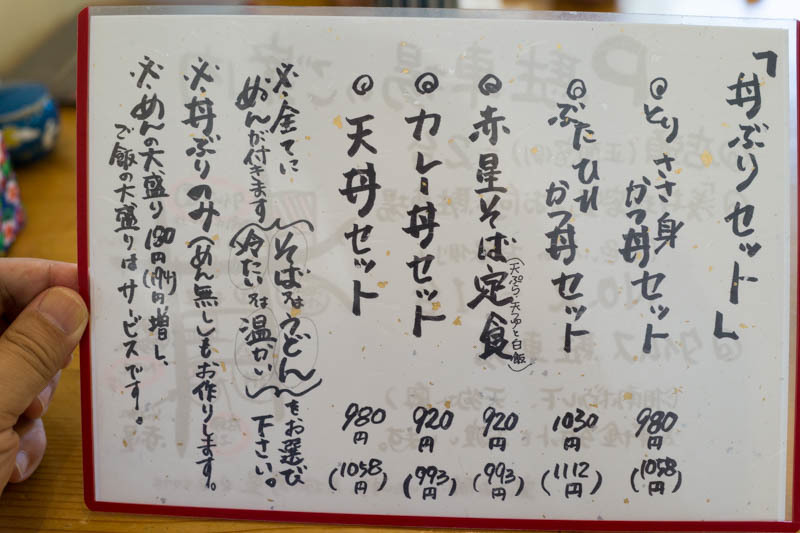 「丼ぶりセット」
◎とりささ身
かつ丼セット 980円(1058円)
◎ぶたひれ
かつ丼セット 1030円(1112円)
◎赤星そば定食(天ぷら・天つゆと白飯) 920円(993円)
◎カレー丼セット 920円(993円)
◎天丼セット 980円(1058円)
※全てに
めんが付きます(そば又はうどん)をお選び
(冷たい又は温かい)下さい。
※丼ぶりのみ(めん無し)もお作りします。
※めんの大盛り180円(194円)増し、
ご飯の大盛りはサービスです。